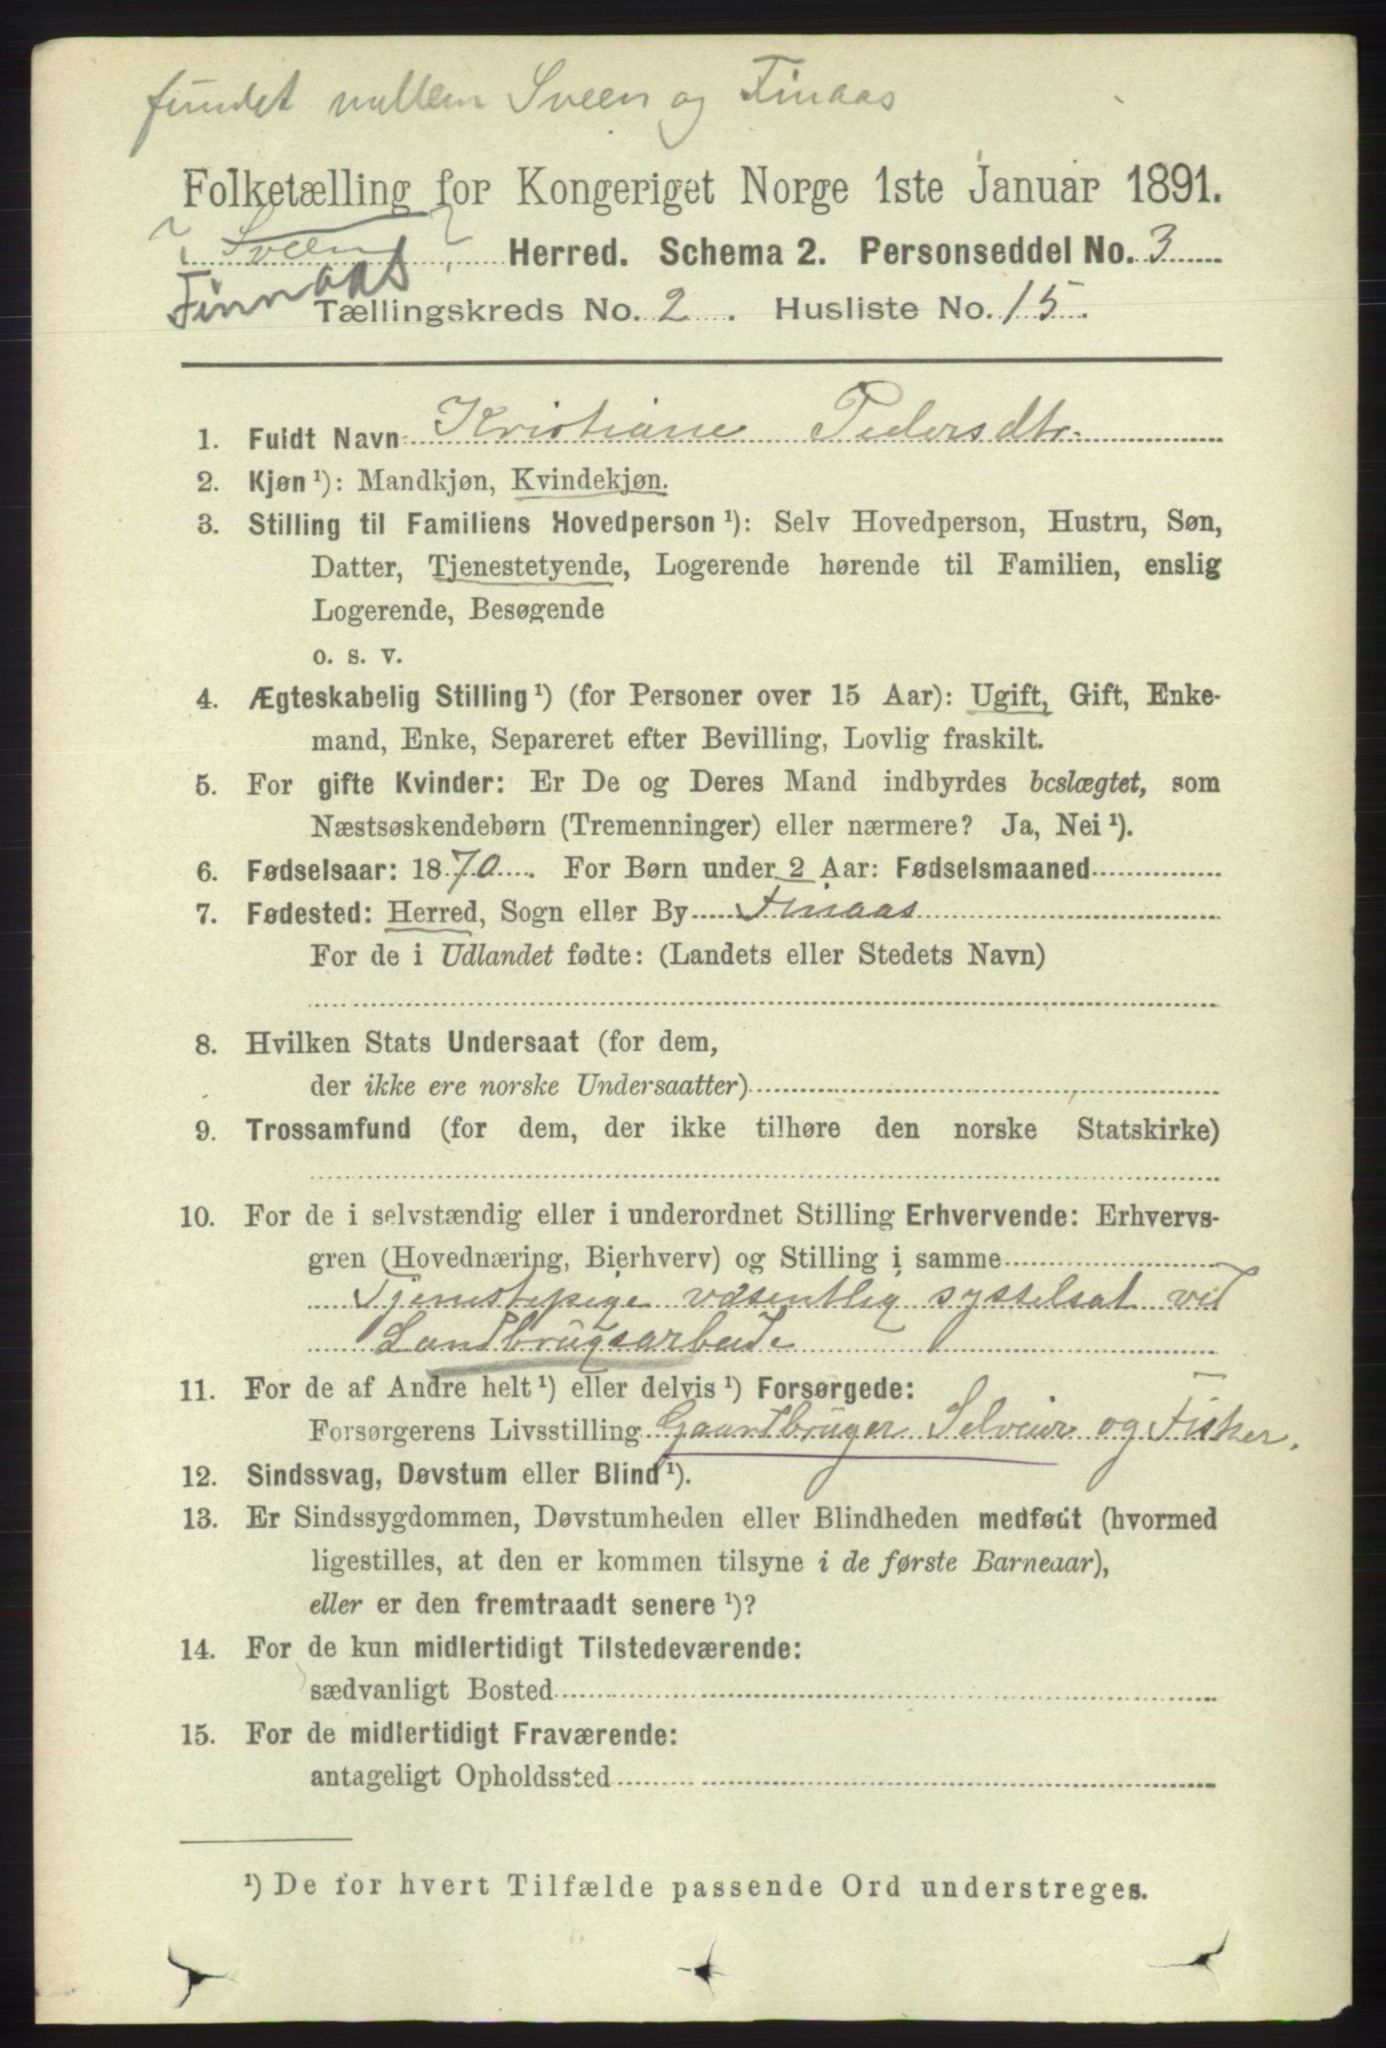 fundet mellem Sveen og Finaas
Folketælling for Kongeriget Norge 1ste Januar 1891.
? Sveen ? Herred. Schema 2. Personseddel No. 3
Finnaas
Tællingskreds No. 2. Husliste No. 15.
1. Fuldt Navn Kristiane Pedersdtr.
2. Kjøn ¹): Mandkjøn, Kvindekjøn.
3. Stilling til Familiens Hovedperson ¹): Selv Hovedperson, Hustru, Søn,
Datter, Tjenestetyende, Logerende hørende til Familien, enslig
Logerende, Besøgende
o. s. v.
4. Ægteskabelig Stilling ¹) (for Personer over 15 Aar): Ugift, Gift, Enke-
mand, Enke, Separeret efter Bevilling, Lovlig fraskilt.
5. For gifte Kvinder: Er De og Deres Mand indbyrdes beslægtet, som
Næstsøskendebørn (Tremenninger) eller nærmere? Ja, Nei ¹).
6. Fødselsaar: 1870. For Børn under 2 Aar: Fødselsmaaned
7. Fødested: Herred, Sogn eller By Finaas
For de i Udlandet fødte: (Landets eller Stedets Navn)
8. Hvilken Stats Undersaat (for dem,
der ikke ere norske Undersaatter)
9. Trossamfund (for dem, der ikke tilhøre den norske Statskirke)
10. For de i selvstændig eller i underordnet Stilling Erhvervende: Erhvervs-
gren (Hovednæring, Bierhverv) og Stilling i samme
Tjenestepige væsentlig sysselsat ved
Landbrugsarbeide
11. For de af Andre helt ¹) eller delvis ¹) Forsørgede:
Forsørgerens Livsstilling Gaardbruger Selveier og Fisker.
12. Sindssvag, Døvstum eller Blind ¹).
13. Er Sindssygdommen, Døvstumheden eller Blindheden medfødt (hvormed
ligestilles, at den er kommen tilsyne i de første Barneaar),
eller er den fremtraadt senere ¹)?
14. For de kun midlertidigt Tilstedeværende:
sædvanligt Bosted
15. For de midlertidigt Fraværende:
antageligt Opholdssted
¹) De for hvert Tilfælde passende Ord understreges.